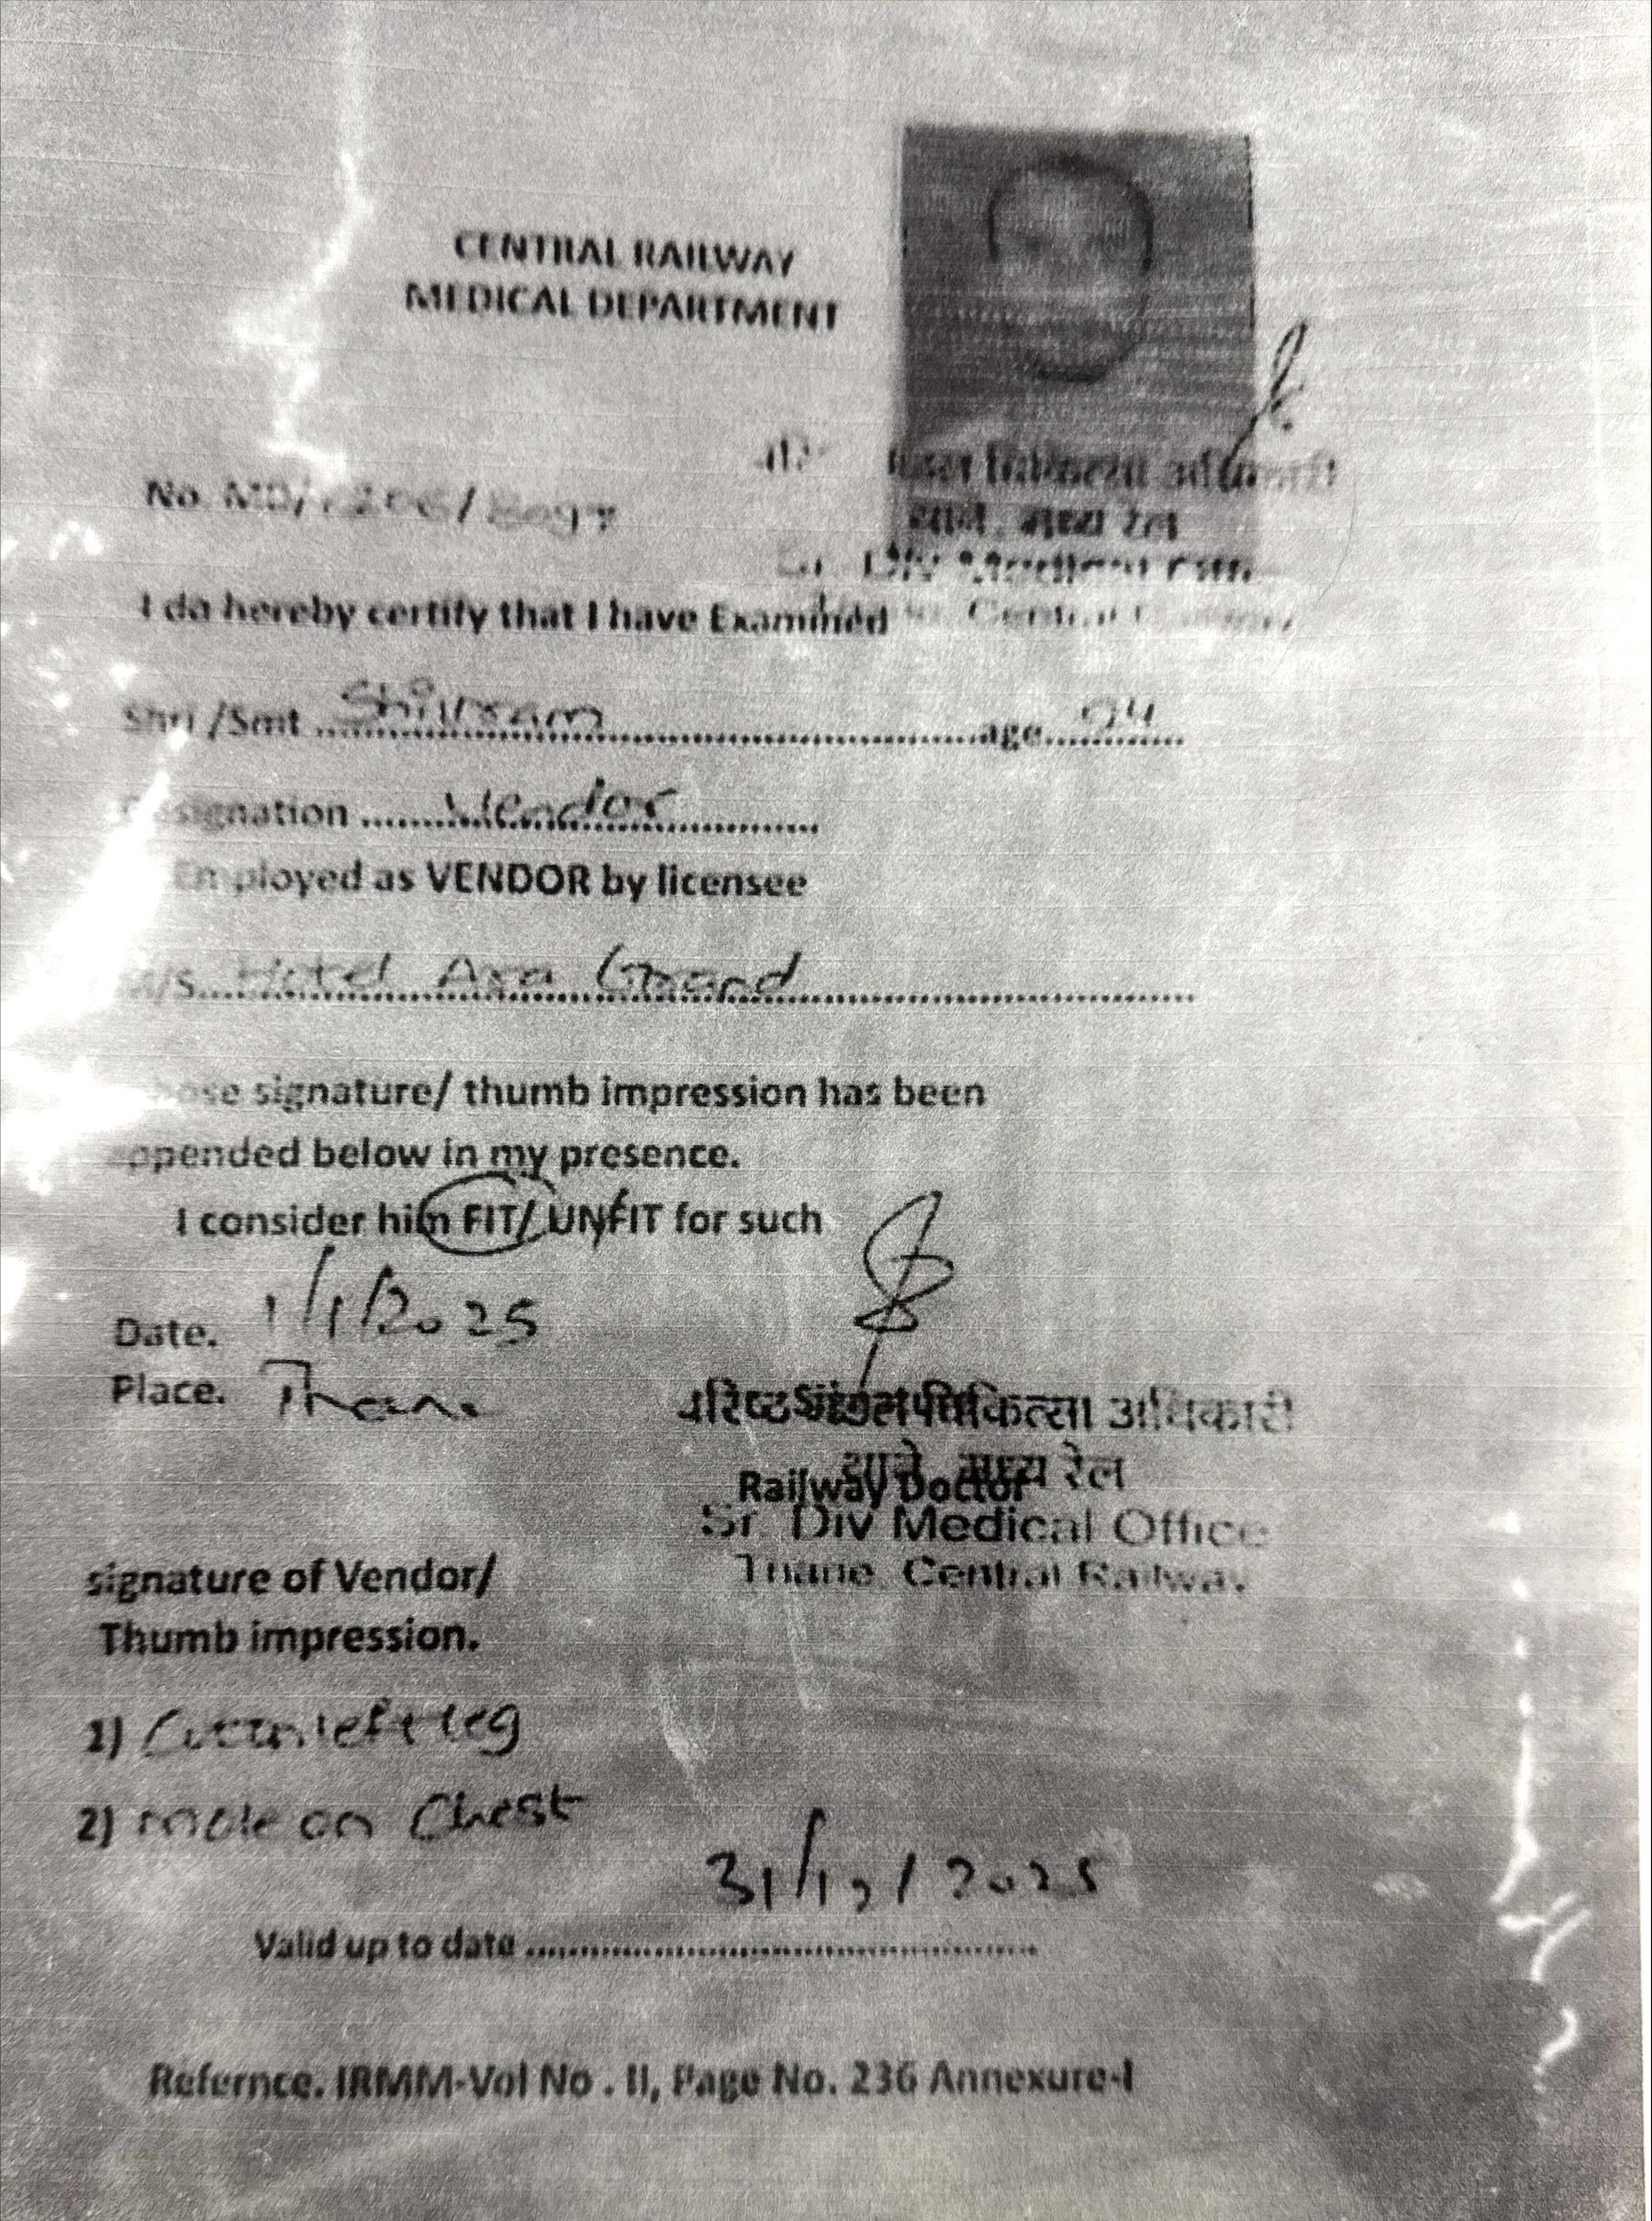 CENTRAL RAILWAY
MEDICAL DEPARTMENT
No. MD/
Sr. Div Medical
I do hereby certify that I have Examined Central
Shri /Smt Shivram age
Designation Vendor
Employed as VENDOR by licensee
M/S. Hotel Asa Grand
whose signature/ thumb impression has been
appended below in my presence.
I consider him FIT/ UNFIT for such
Date. 1/1/2025
Place. Thane
Signature
वरिष्ठ मंडल चिकित्सा अधिकारी
थाने, मध्य रेल
Railway Doctor
Sr. Div Medical Office
Thane, Central Railway
signature of Vendor/
Thumb impression.
1) left leg
2) mole on Chest
31/12/2025
Valid up to date
Refernce. IRMM-Vol No . II, Page No. 236 Annexure-I